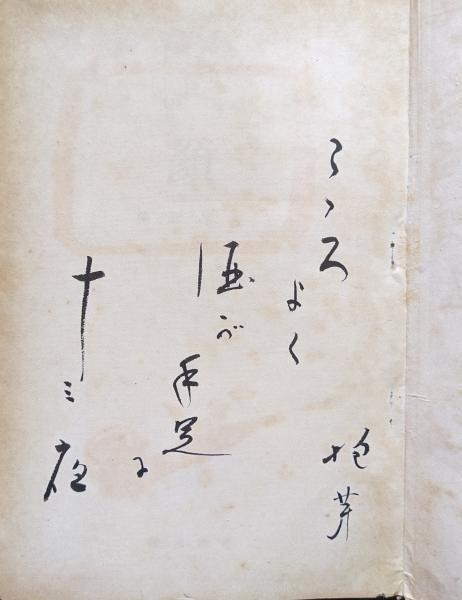 こゝろよく
酒が手足に
十三夜
抱芽